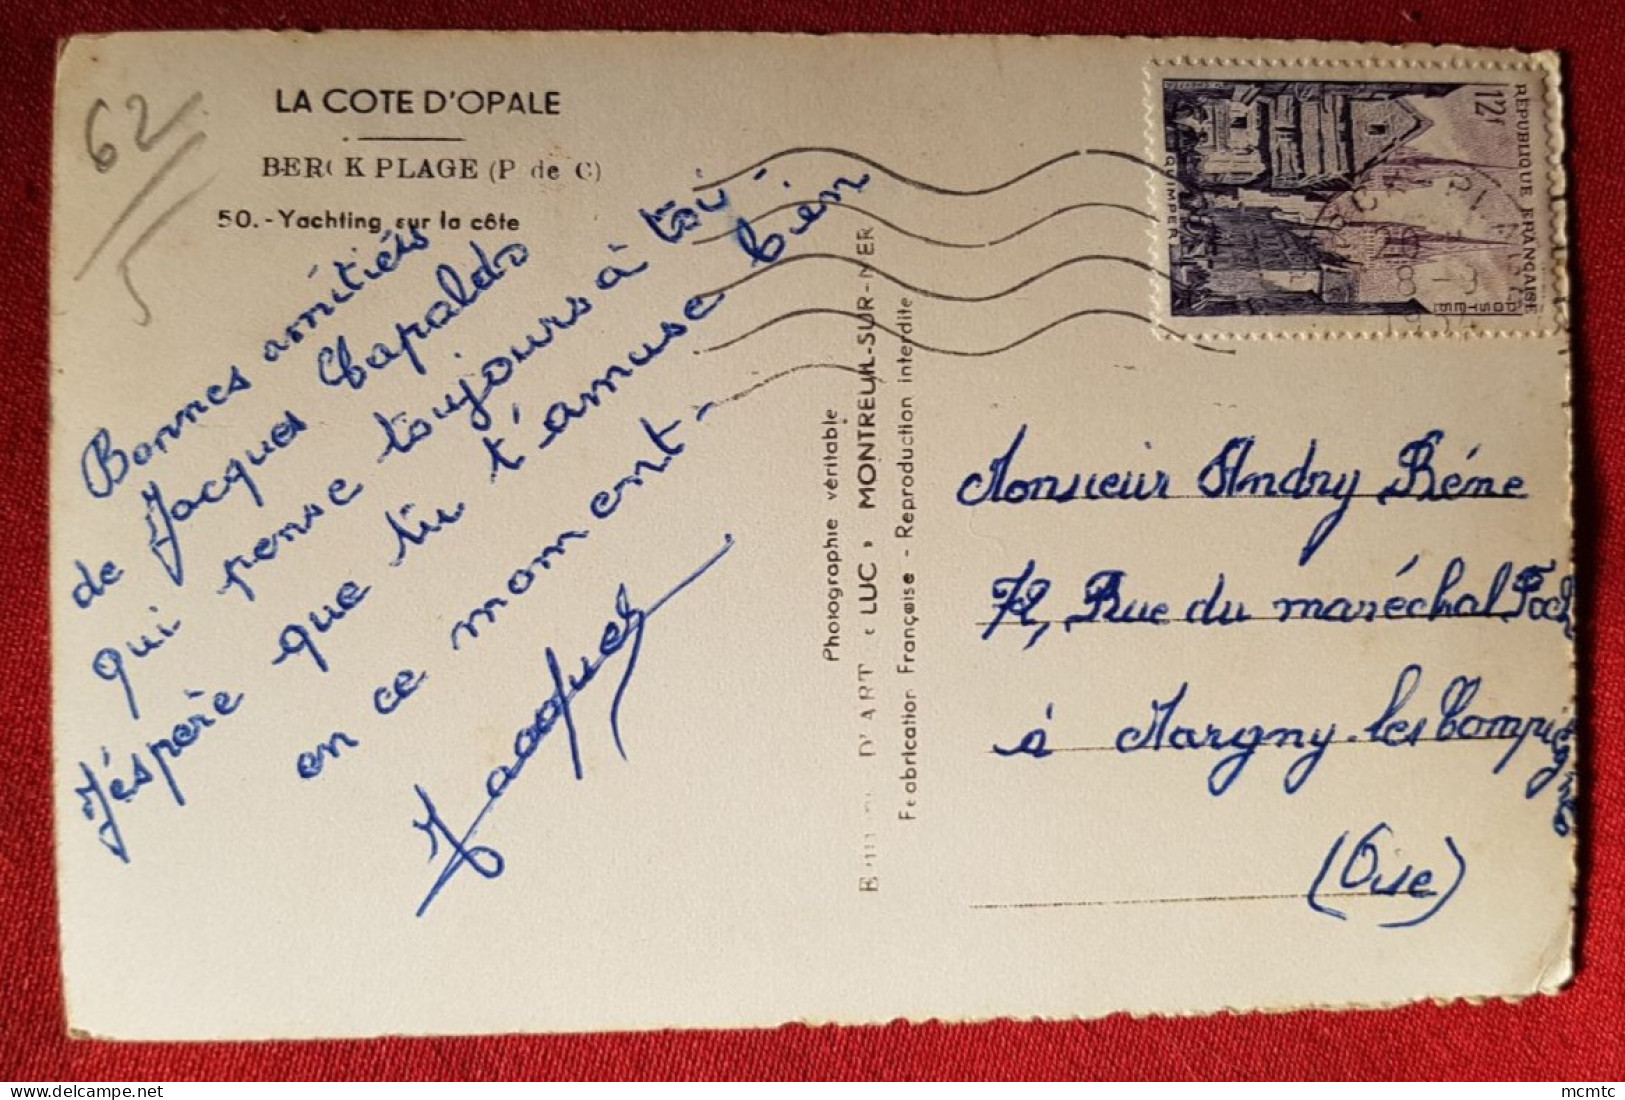 62
5
LA COTE D'OPALE
BERCK PLAGE (P de C)
50.- Yachting sur la côte
Bonnes amitiés
de Jacques Capaldo
qui pense toujours à toi.
J'éspère que tu t'amuse bien
en ce moment-
Jacques
Photographie véritable
D'ART « LUC » MONTREUIL-SUR-MER
Fabrication Française - Reproduction interdite
RÉPUBLIQUE FRANÇAISE
12F
POSTES
QUIMPER
Monsieur Andry Réne
72, Rue du maréchal Foch
à Margny-les Compiègne
(Oise)
mcmtc